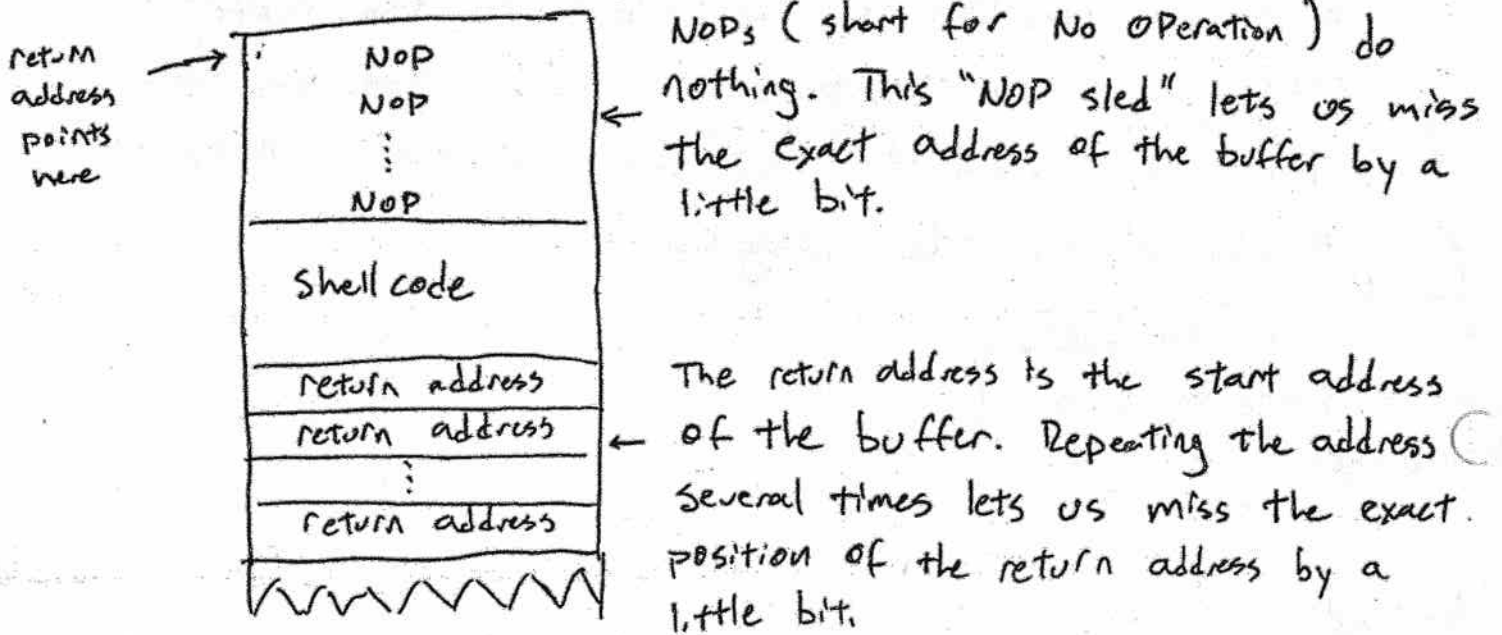 return
address
points
here
NOP
NOP
NOP
shell code
return address
return address
return address
NOPs (short for No OPeration) do
nothing. This "NOP sled" lets us miss
the exact address of the buffer by a
little bit.
The return address is the start address
of the buffer. Repeating the address
several times lets us miss the exact
position of the return address by a
little bit.